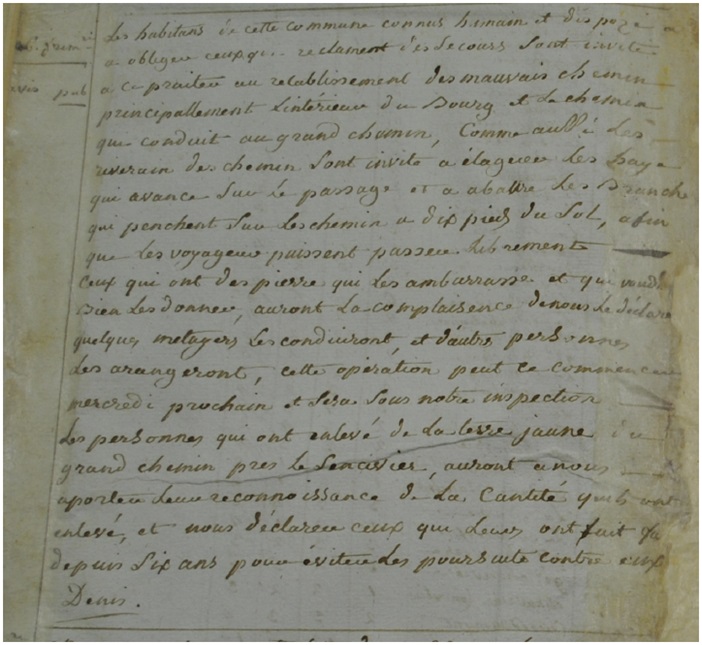 Les habitans de cette commune connus humain et dispozé a
a obliger ceux qui reclament des secours sont invité
a ce praiter au retablissement des mauvais chemin
principallement l'intérieur du Bourg et le chemin
qui conduit au grand chemin, Comme aussi Les
riverain des chemin sont invité a élaguer Les haye
qui avance sur le passage et a abattre les Branche
qui penchent sur Les chemin a dix pieds du sol, afin
que Les voyageur puissent passer librement
Ceux qui ont des pierre qui Les ambarrasse et qui voudr
bien Les donner, auront La complaisence de nous le déclare
quelques metayers Les conduiront, et d'autre personnes
Les arangeront, cette opération peut ce commencer
mercredi prochain et sera sous notre inspection
Les personnes qui ont enlevé de La terre jaune du
grand chemin pres le auront a nous
aporter leur reconnoissance de La Cantité qu'ils ont
enlevé, et nous déclarer ceux qui Leurs ont fait
depuis Six ans pour éviter Les poursuite contre eux
Denis.
pub